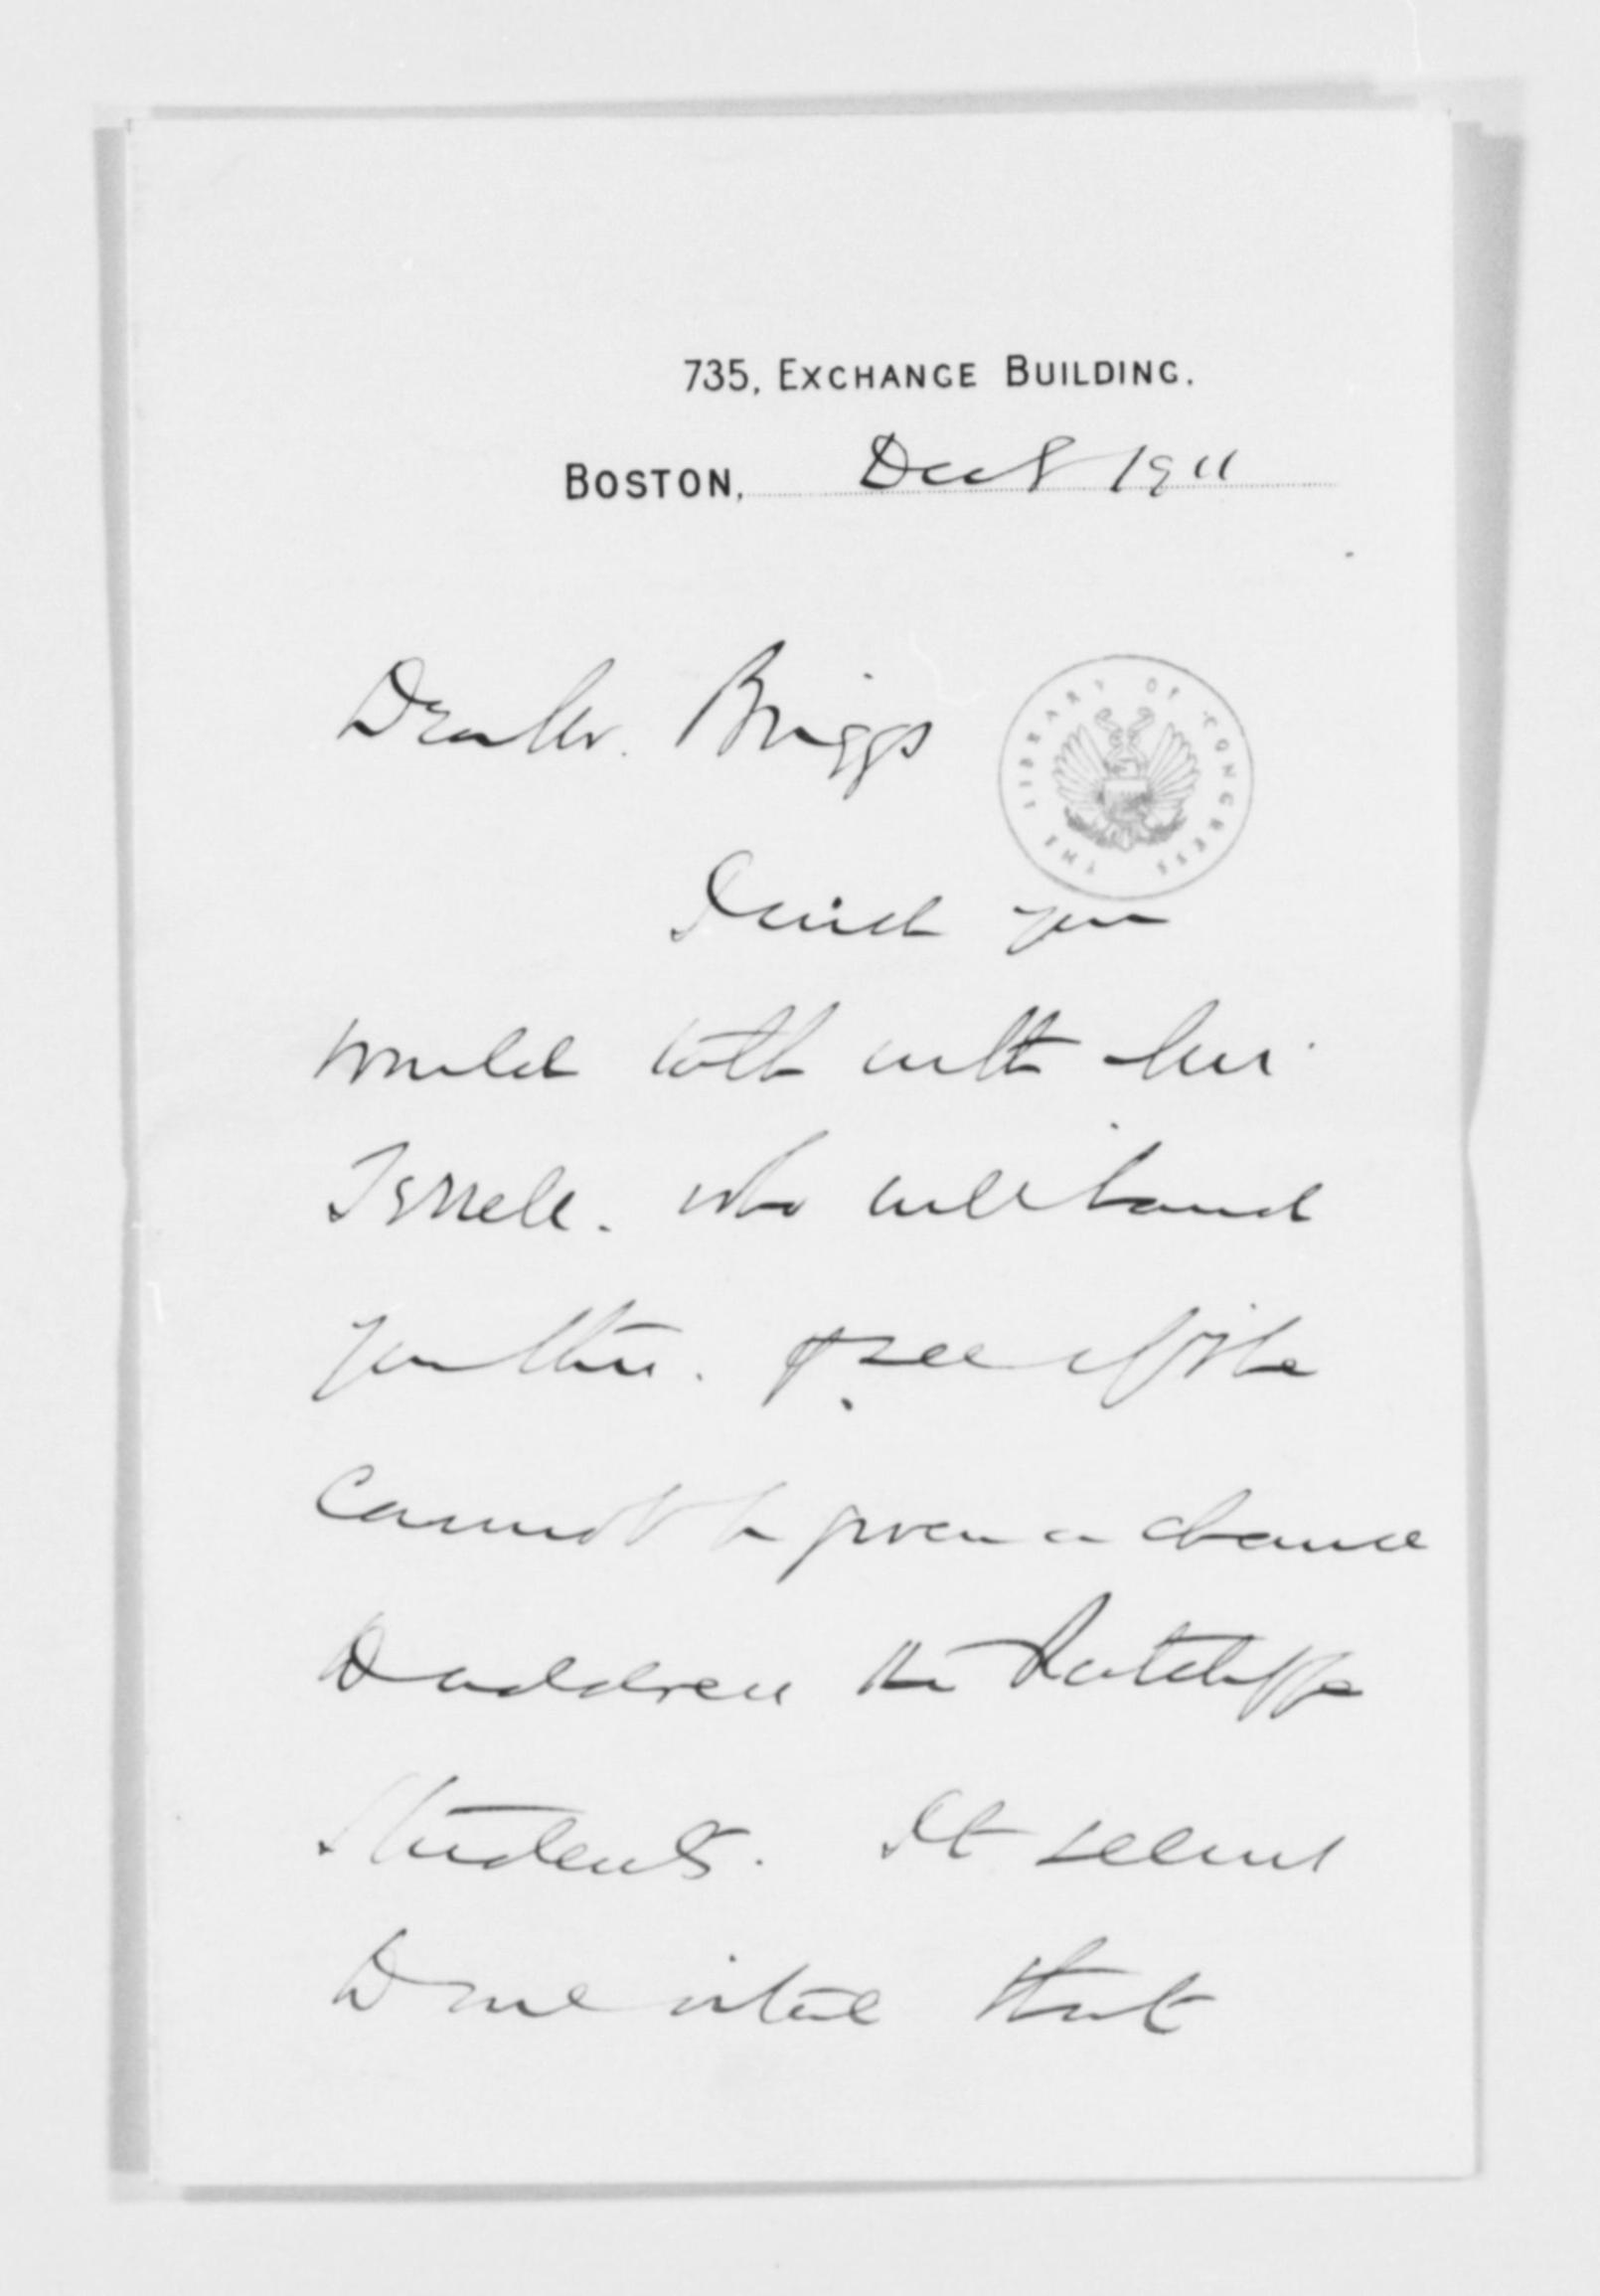 735, EXCHANGE BUILDING.
BOSTON, Dec 8 1911
Dear Mr. Briggs
THE LIBRARY OF CONGRESS
I wish you
would talk with Mrs.
Terrell. who will hand
you this. & see if she
cannot be given a chance
to address the Ratcliffe
Students. It seems
to me vital that